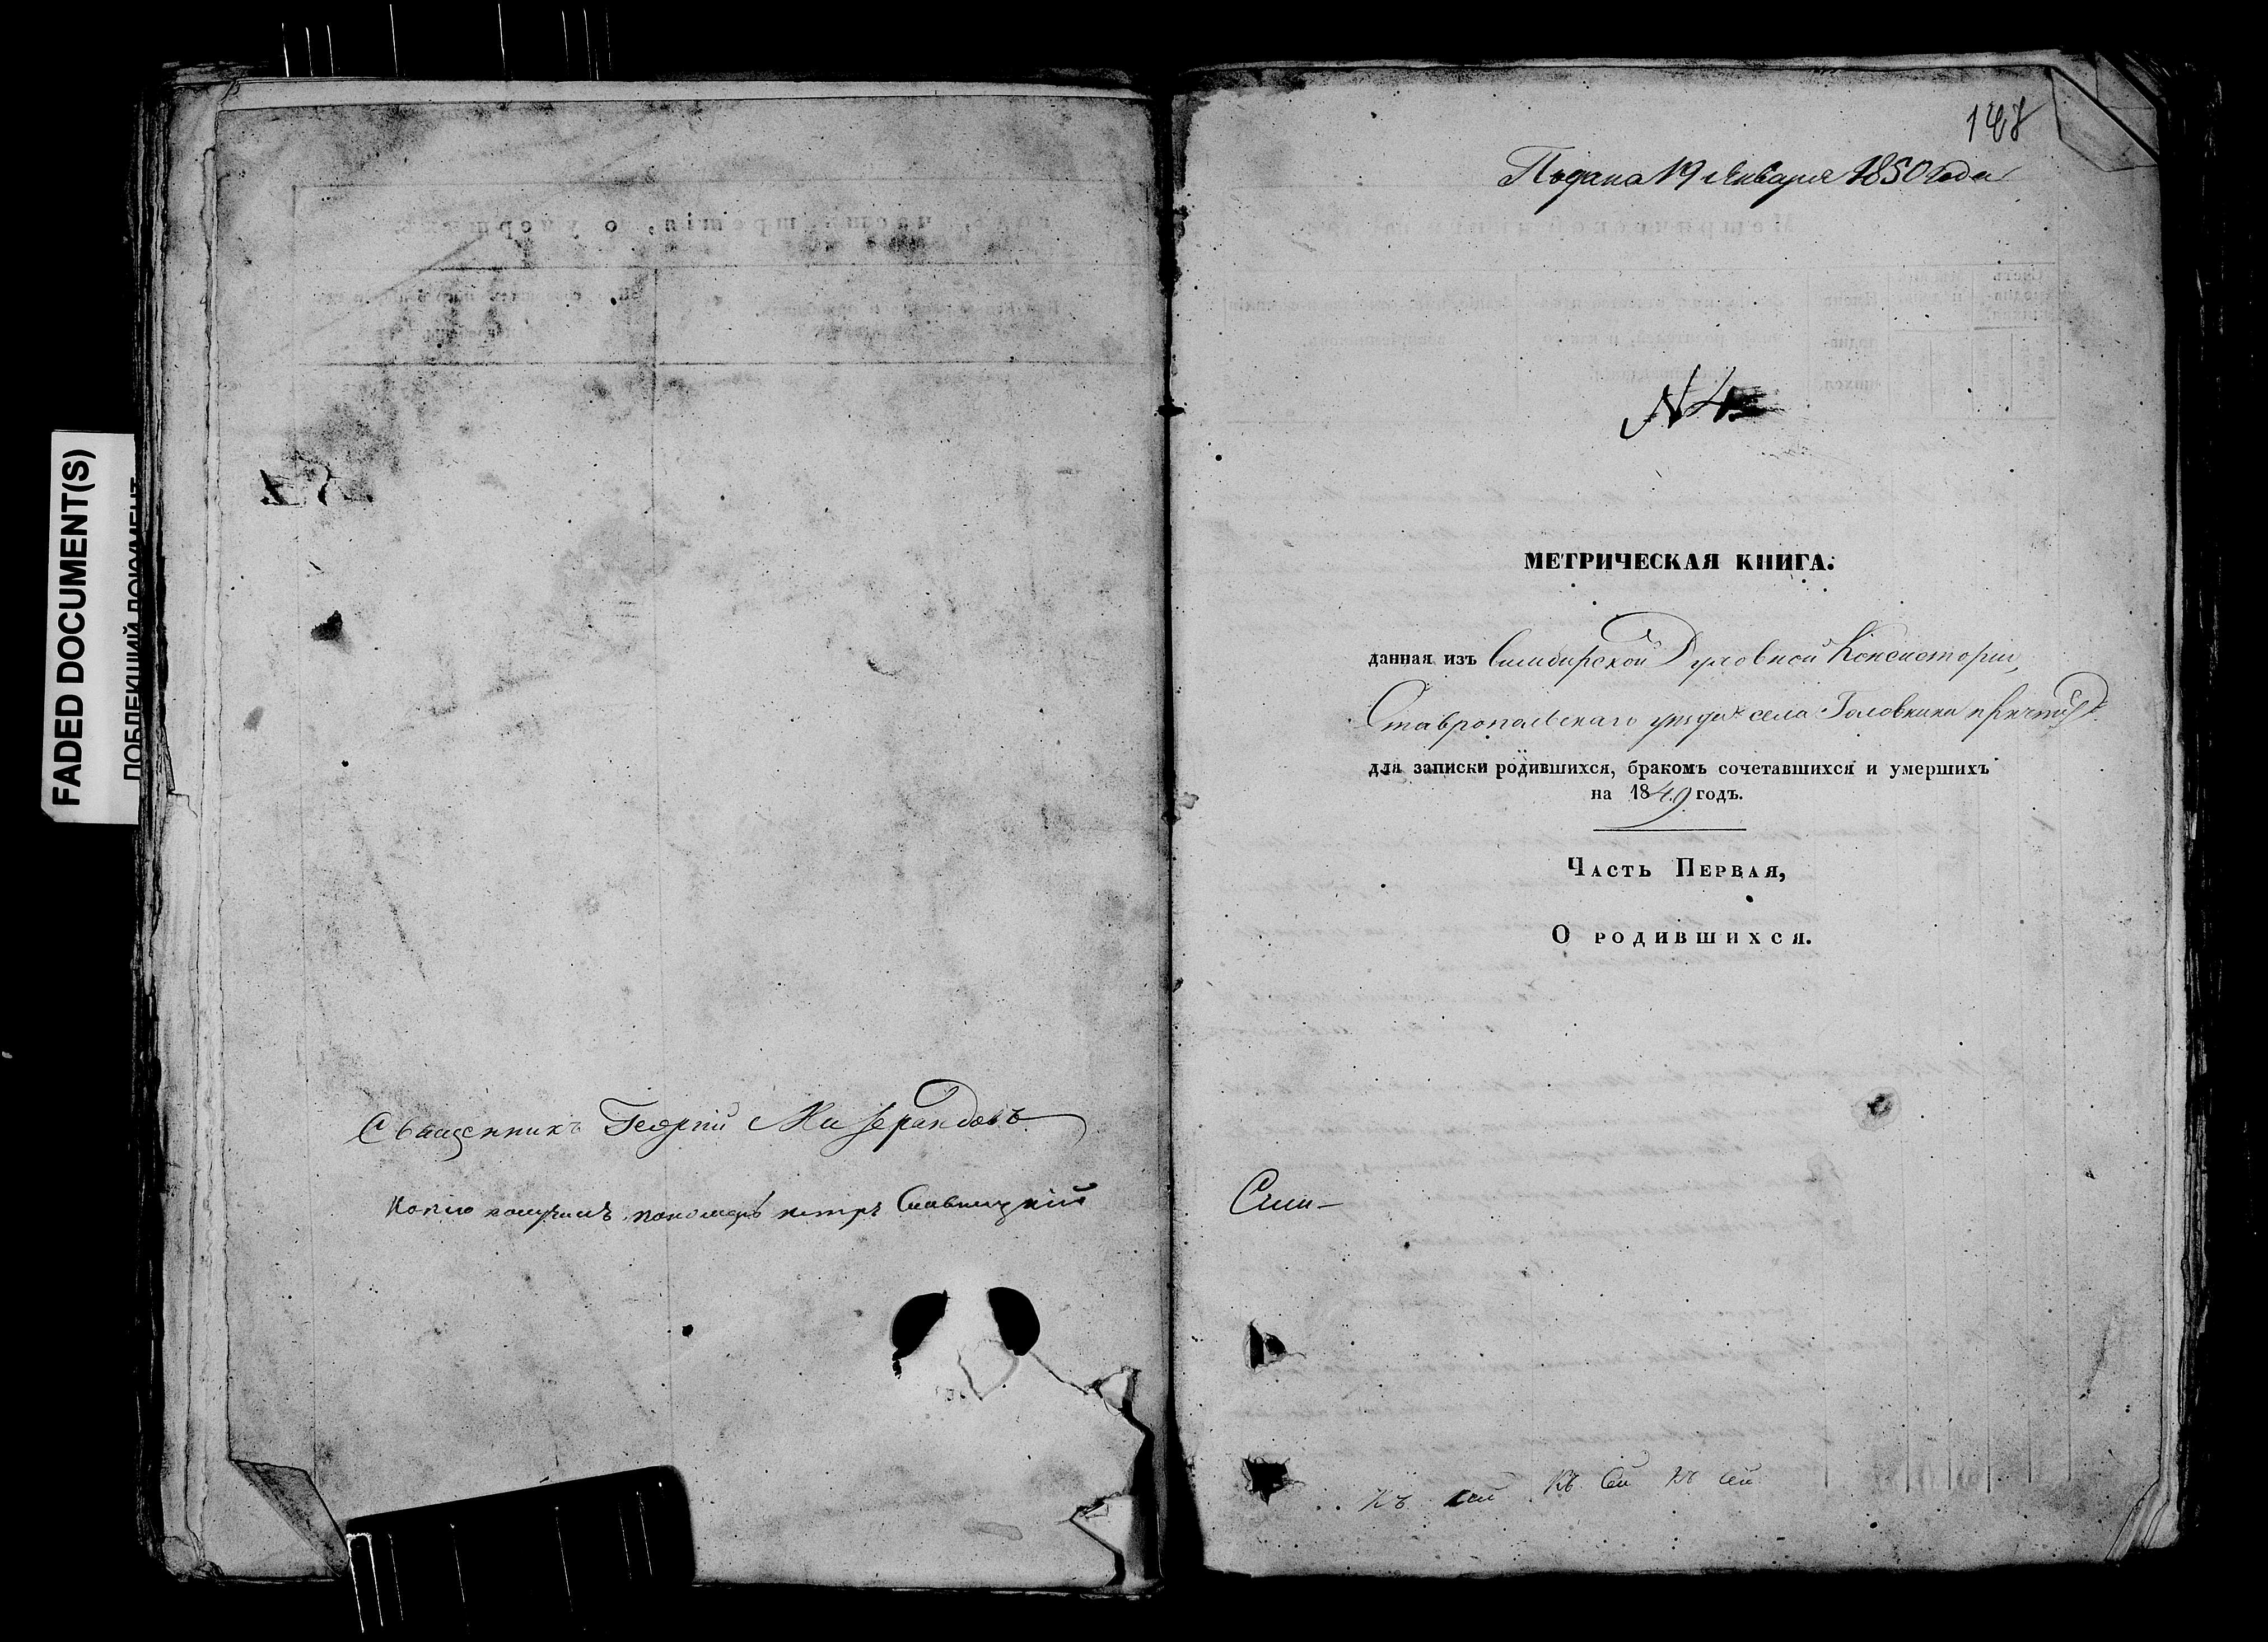 FADED DOCUMENT(S)
ПОБЛЕКШИЙ ДОКУМЕНТ
Священникъ Георгій
Копию получилъ пономарь петръ
148
Подана 19 Января 1850 года
N 4
МЕТРИЧЕСКАЯ КНИГА.
данная изъ Симбирской Духовной Консисторіи,
Ставропольскаго уѣзда села Головкина причту
для записки родившихся, бракомъ сочетавшихся и умершихъ
на 1849 годъ.
Часть Первая,
О родившихся.
Сим-
Къ сей Къ сей Къ сей